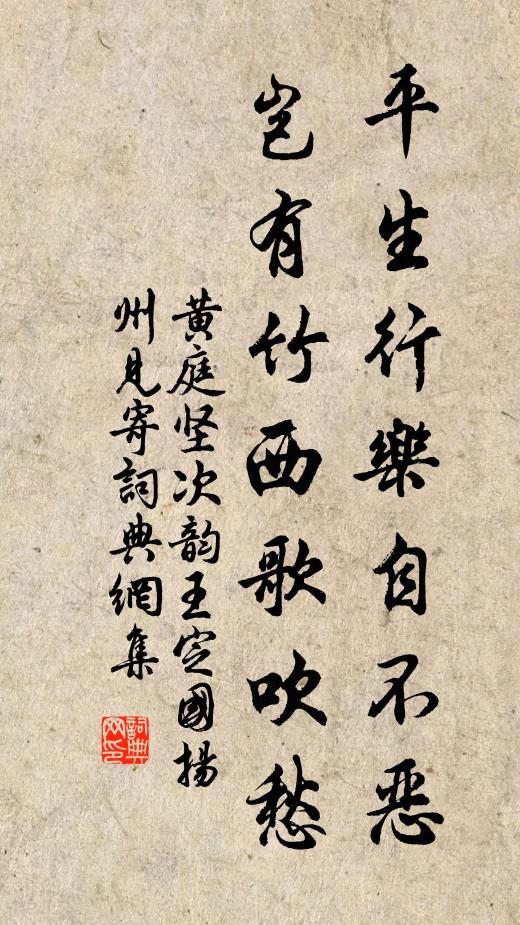 平生行樂自不惡
豈有竹西歌吹愁
黄庭坚次韵王定國揚
州見寄詞典網集
詞典
网印